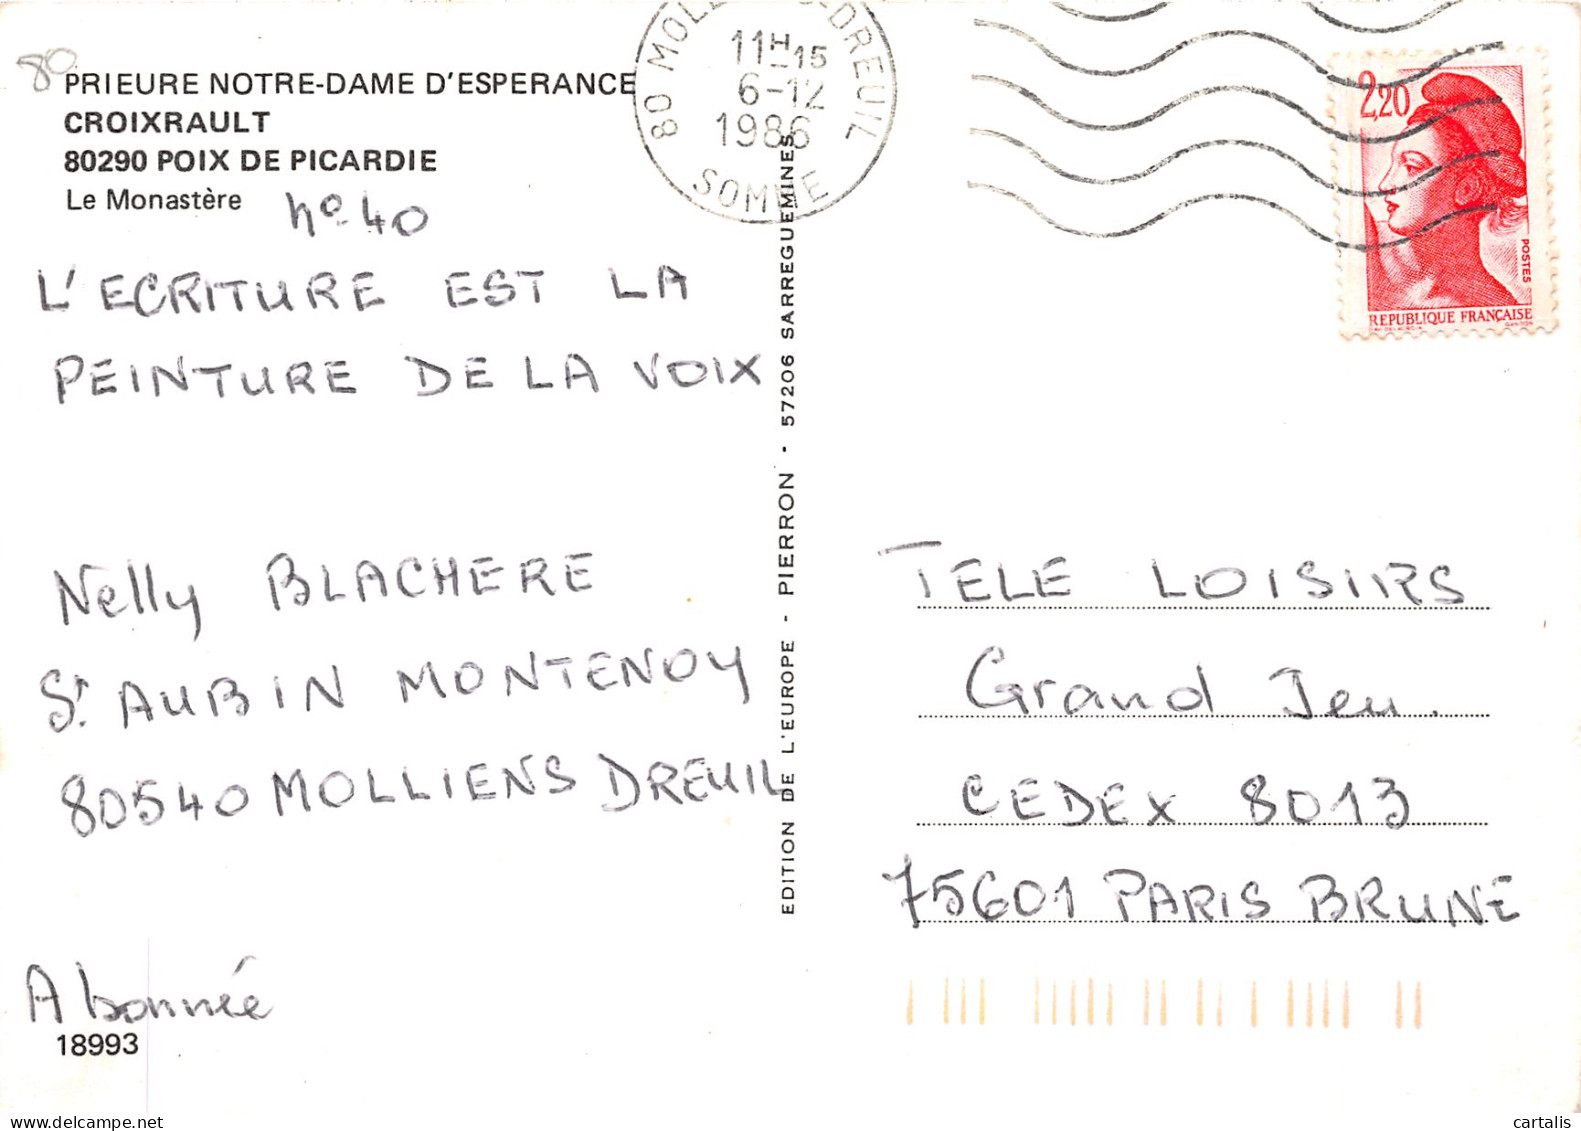 80
PRIEURE NOTRE-DAME D'ESPERANCE
CROIXRAULT
80290 POIX DE PICARDIE
Le Monastère
n° 40
L'ECRITURE EST LA
PEINTURE DE LA VOIX
Nelly BLACHERE
St AUBIN MONTENOY
80540 MOLLIENS DREUIL
Abonnée
18993
EDITION DE L'EUROPE - PIERRON - 57206 SARREGUEMINES
80 MOLLIENS-DREUIL
11H15
6-12
1986
SOMME
2,20
POSTES
REPUBLIQUE FRANÇAISE
TELE LOISIRS
Grand Jeu.
CEDEX 8013
75601 PARIS BRUNE
cartalis